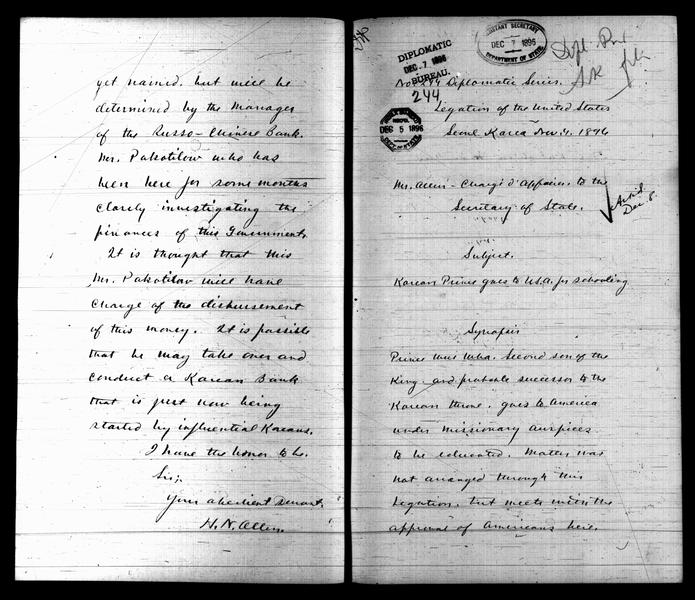 yet named, but will be
determined by the Manager
of the Russo-Chinese Bank.
Mr. Pokotilow who has
been here for some months
closely investigating the
finances of this Government.
It is thought that this
Mr. Pokotilow will have
charge of the disbursement
of this money. It is possible
that he may take over and
conduct a Korean Bank
that is just now being
started by influential Koreans.
I have the honor to be
Sir;
Your obedient servant.
H. N. Allen.
DIPLOMATIC
DEC. 7 1896
BUREAU.
ASSISTANT SECRETARY
DEC 7 1896
DEPARTMENT OF STATE
244
No 244 Diplomatic Series.
Legation of the United States
Seoul Korea Nov 4. 1896
DEC 5 1896
DEPT. OF STATE
Mr. Allen - Chargé d'Affaires, to the
Secretary of State.
Dec. 8.
Subject.
Korean Prince goes to U.S.A. for schooling
Synopsis
Prince Wha. Second son of the
King and probable successor to the
Korean throne, goes to America
under missionary auspices
to be educated. Matter was
not arranged through this
Legation, but meets with the
approval of Americans here.